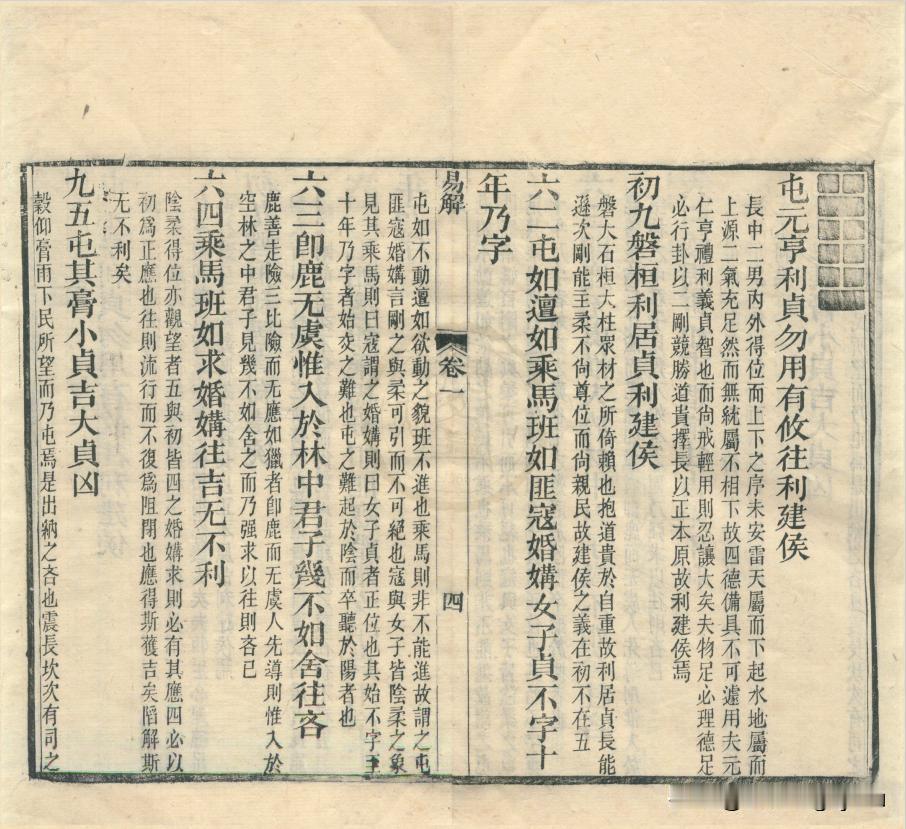 屯元亨利貞勿用有攸往利建侯
長中二男內外得位而上下之序未安雷天屬而下起水地屬而
上源二氣充足然而無統屬不相下故四德備具不可遽用夫元
仁亨禮利義貞智也而尚戒輕用則忍讓大矣夫物足必理德足
必行卦以二剛競勝道貴擇長以正本原故利建侯焉
初九磐桓利居貞利建侯
磐大石桓大柱眾材之所倚賴也抱道貴於自重故利居貞長能
遜次剛能主柔不尚尊位而尚親民故建侯之義在初不在五
六二屯如邅如乘馬班如匪寇婚媾女子貞不字十
年乃字
易解
卷一
四
屯如不動邅如欲動之貌班不進也乘馬則非不能進故謂之屯
匪寇婚媾言剛之與柔可引而不可絶也寇與女子皆陰柔之象
見其乘馬則曰寇謂之婚媾則曰女子貞者正位也其始不字至
十年乃字者始交之難也屯之難起於陰而卒聽於陽者也
六三卽鹿无虞惟入於林中君子幾不如舍往吝
鹿善走險三比險而无應如獵者卽鹿而无虞人先導則惟入於
空林之中君子見幾不如舍之而乃强求以往則吝已
六四乘馬班如求婚媾往吉无不利
陰柔得位亦觀望者五與初皆四之婚媾求則必有其應四必以
初爲正應也往則流行而不復爲阻閉也應得斯獲吉矣陷解斯
无不利矣
九五屯其膏小貞吉大貞凶
穀仰膏雨下民所望而乃屯焉是出納之吝也震長坎次有司之